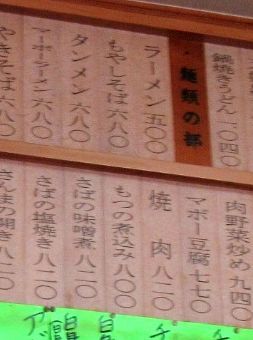 鍋焼きうどん一、〇四〇
・麺類の部
ラーメン五〇〇
もやしそば六八〇
タンメン六八〇
マーボーラーメン六八〇
やきそば六八〇
肉野菜炒め九四〇
マボー豆腐七七〇
焼肉八二〇
もつの煮込み八〇〇
さばの味噌煮八二〇
さばの塩焼き八二〇
さんまの開き八二〇